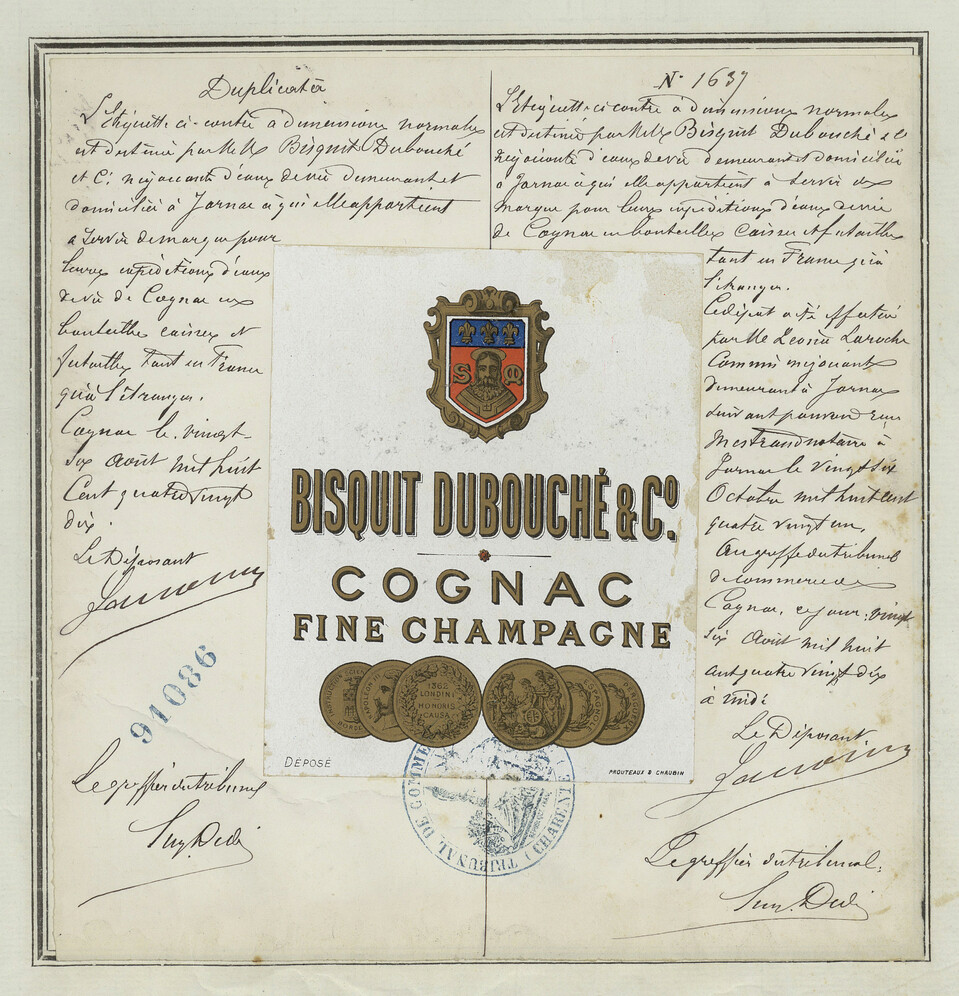 Duplicata
L'étiquette ci-contre à dimensions normales
est destinée par MM. Bisquit Dubouché
et Cie négociants d'eaux de vie demeurant et
domiciliés à Jarnac à qui elle appartient
à servir de marque pour
leurs expéditions d'eaux
de vie de Cognac en
bouteilles caisses et
futailles tant en France
qu'à l'étranger.
Cognac le vingt
six Août mil huit
Cent quatre vingt
dix.
Le Déposant
91086
Le greffier du tribunal
N° 1637
L'étiquette ci contre à dimensions normales
est destinée par MM. Bisquit Dubouché et Cie
négociants d'eaux de vie demeurant et domiciliés
à Jarnac à qui elle appartient à servir de
marque pour leurs expéditions d'eaux de vie
de Cognac en bouteilles caisses et futailles
tant en France qu'à
l'étranger.
Ce dépôt a été effectué
par Mr Laroche
Commis négociant
demeurant à Jarnac
suivant pouvoir
notaire à
Jarnac le vingt six
Octobre mil huit cent
quatre vingt un.
Au greffe du tribunal
de commerce de
Cognac, ce jour vingt
six Août mil huit
cent quatre vingt dix
à midi
Le Déposant
Le greffier du tribunal.
S M
BISQUIT DUBOUCHÉ & Cº.
COGNAC
FINE CHAMPAGNE
NAPOLEON III
1862
LONDINI
HONORIS
CAUSA
DÉPOSÉ
PROUTEAUX & CHAUBIN
TRIBUNAL DE COMMERCE
(CHARENTE)